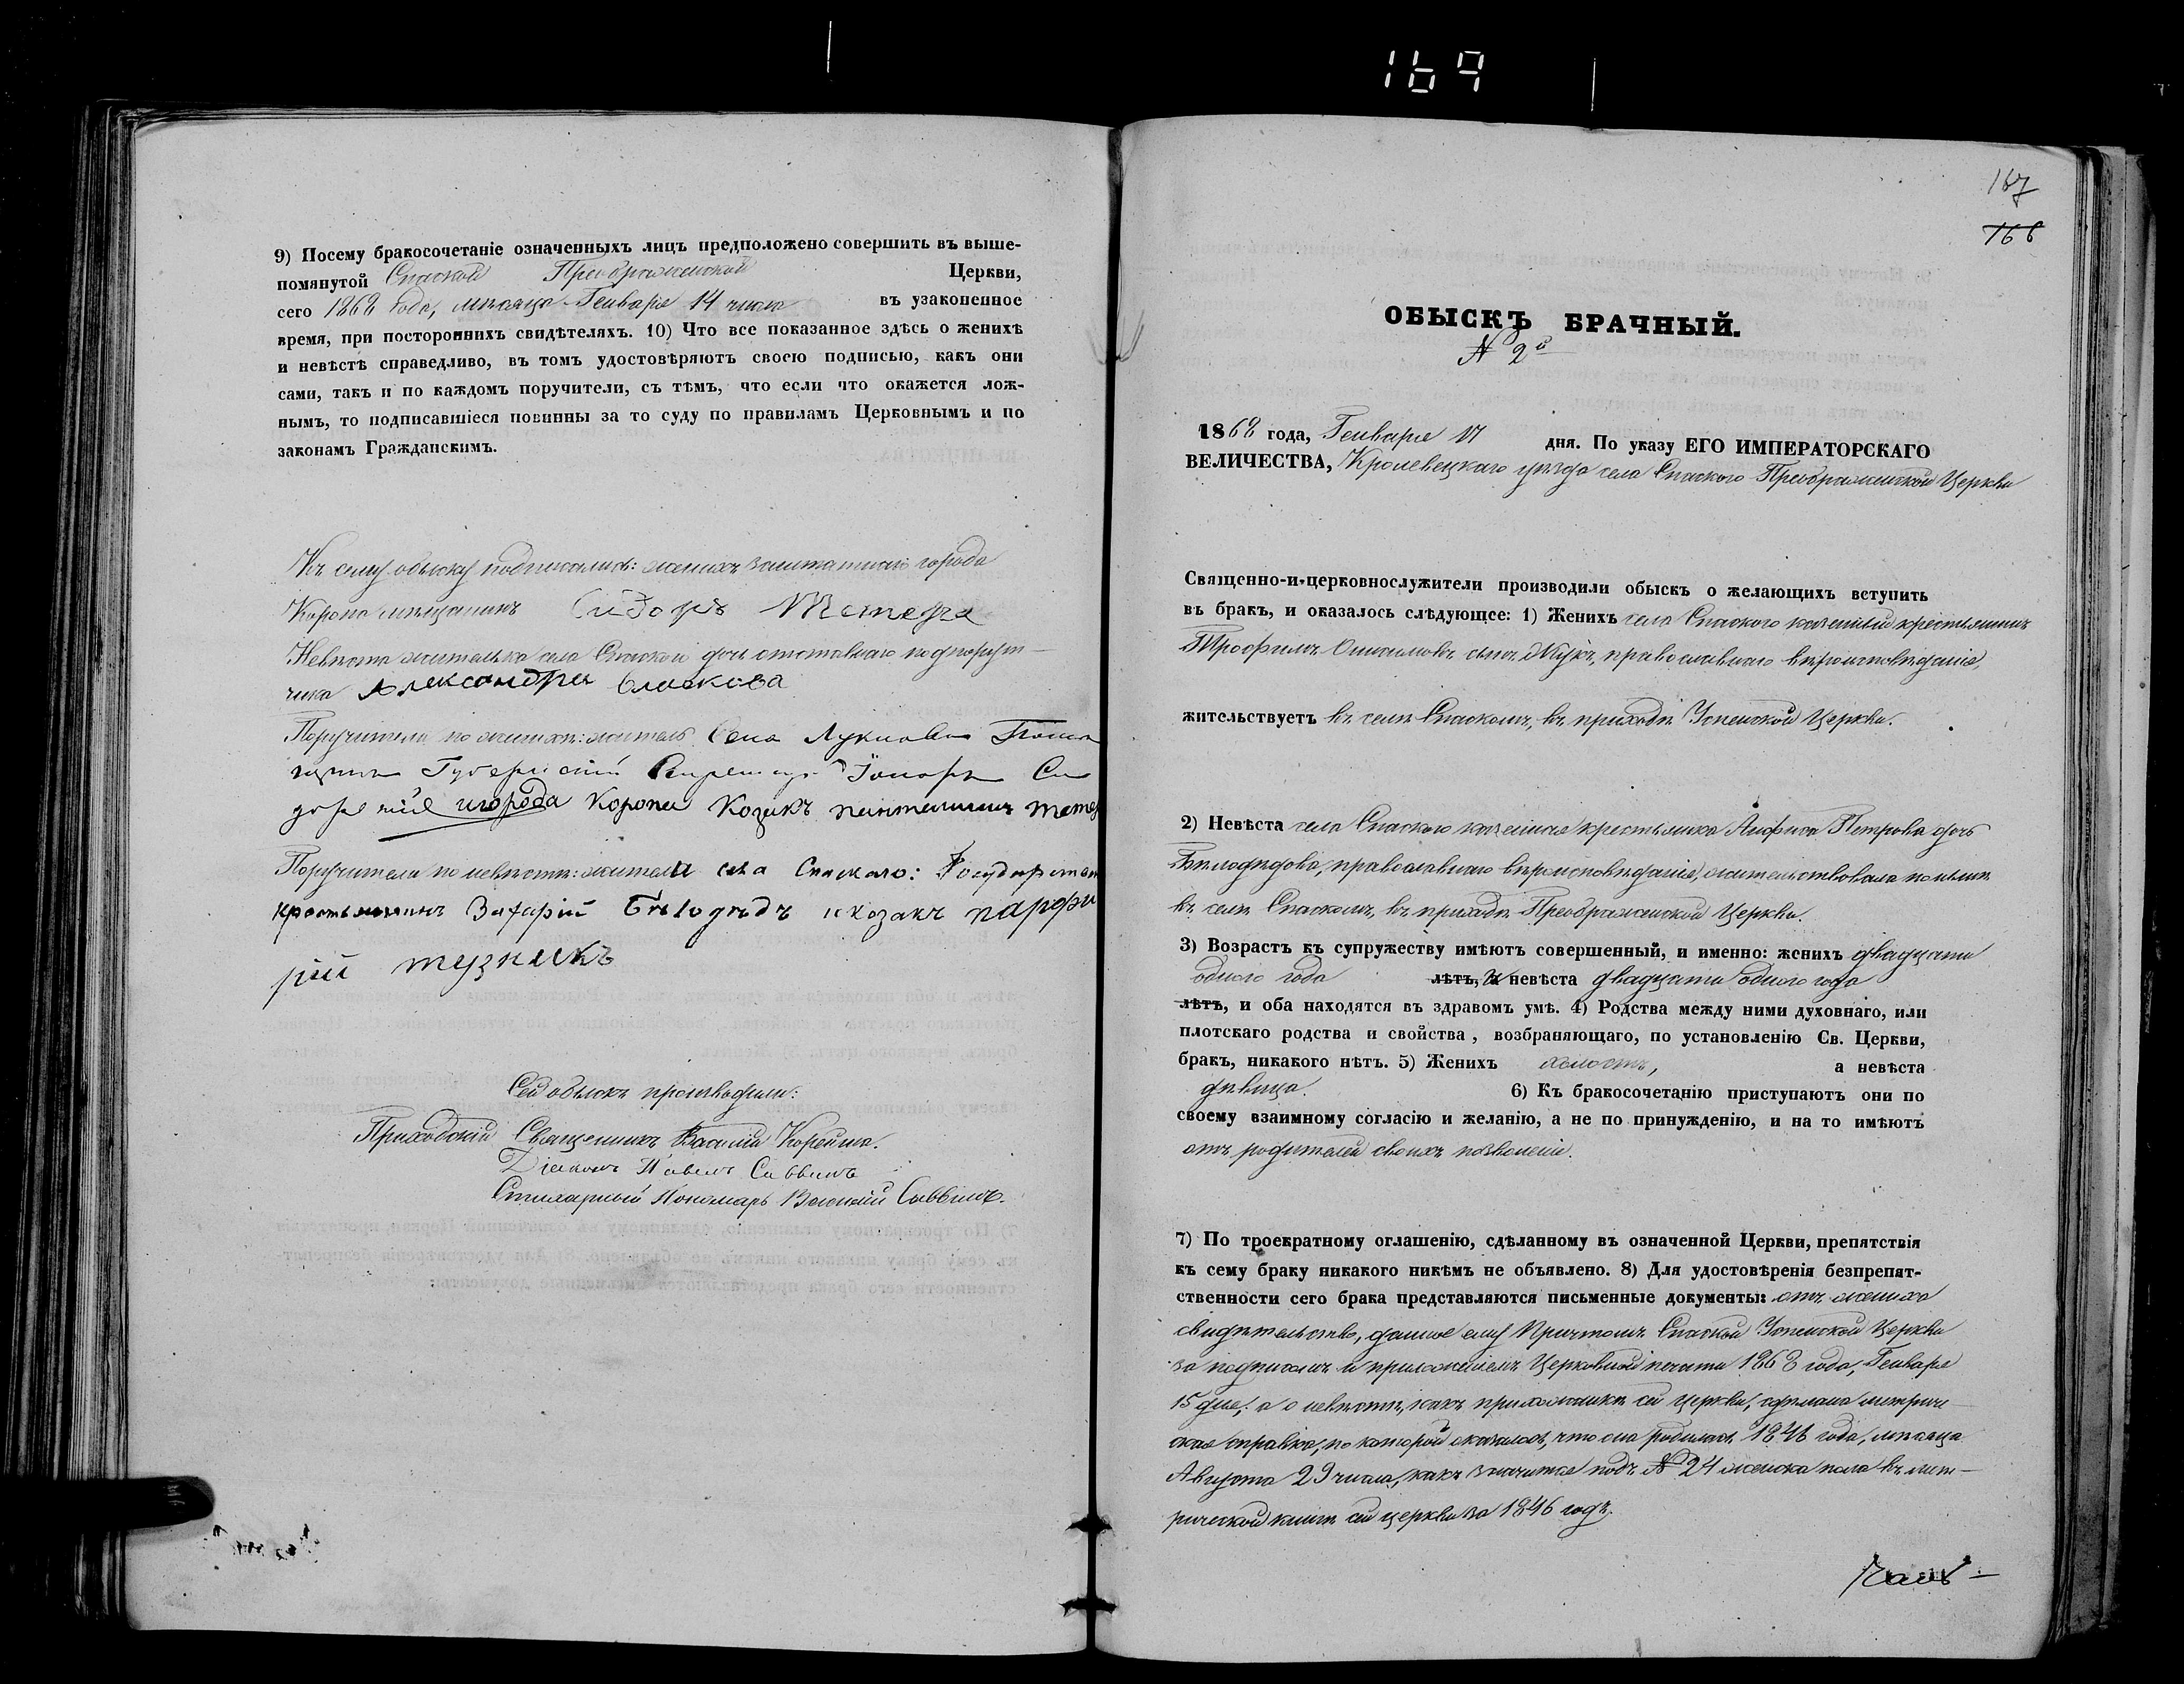 169
9) Посему бракосочетаніе означенныхъ лицъ предположено совершить въ выше-
помянутой Спаской Преображенской Церкви,
сего 1868 года, мѣсяца Генваря 14 числа въ узаконенное
время, при постороннихъ свидѣтеляхъ. 10) Что все показанное здѣсь о женихѣ
и невѣстѣ справедливо, въ томъ удостовѣряютъ своею подписью, какъ они
сами, такъ и по каждомъ поручители, съ тѣмъ, что если что окажется лож-
нымъ, то подписавшіеся повинны за то суду по правиламъ Церковнымъ и по
законамъ Гражданскимъ.
Къ сему обыску подписались: женихъ заштатнаго города
Коропа мѣщанинъ Сидоръ Тетера
Невѣста жителька села Спаской дочь отставнаго подпорут-
чика Александра
Поручители по женихѣ: житель Села
Губернскій Секретарь
игорода Коропа Козакъ пантелимонъ
Поручители по невѣстѣ: жители села Спаскаго:
крестьянинъ Захарій Бѣлодѣдъ и козакъ парфи
рій
Сей обыскъ производили:
Приходскій Священникъ Василій Корейша.
Діаконъ Павелъ Саввинъ
Стихарный Пономарь Василій Саввинъ.
167
168
ОБЫСКЪ БРАЧНЫЙ.
№ 2й
1868 года, Генваря 17 дня. По указу ЕГО ИМПЕРАТОРСКАГО
ВЕЛИЧЕСТВА, Кролевецкаго уѣзда села Спаского Преображенской Церкви
Священно-и-церковнослужители производили обыскъ о желающихъ вступить
въ бракъ, и оказалось слѣдующее: 1) Женихъ села Спаского казенный крестьянинъ
Трофимъ сынъ православнаго вѣроисповѣданія,
жительствуетъ въ селѣ Спаскомъ, въ приходѣ Успенской Церкви.
2) Невѣста села Спаского казенная крестьянка Анфиса Петрова дочь
Бѣлодѣдова, православнаго вѣроисповѣданія, жительствовала понынѣ
въ селѣ Спаскомъ, въ приходѣ Преображенской Церкви.
3) Возрастъ къ супружеству имѣютъ совершенный, и именно: женихъ двадцати
одного года лѣтъ, а невѣста двадцати одного года
лѣтъ, и оба находятся въ здравомъ умѣ. 4) Родства между ними духовнаго, или
плотскаго родства и свойства, возбраняющаго, по установленію Св. Церкви,
бракъ, никакого нѣтъ. 5) Женихъ холостъ, а невѣста
дѣвица. 6) Къ бракосочетанію приступаютъ они по
своему взаимному согласію и желанію, а не по принужденію, и на то имѣютъ
отъ родителей своихъ позволеніе.
7) По троекратному оглашенію, сдѣланному въ означенной Церкви, препятствія
къ сему браку никакого никѣмъ не объявлено. 8) Для удостовѣренія безпрепят-
ственности сего брака представляются письменные документы: отъ жениха
свидѣтельство, данное ему Причтомъ Спаской Успенской Церкви
за подписомъ и приложеніемъ Церковной печати 1868 года, Генваря
15 дня; а о невѣстѣ, какъ прихожанкѣ сей церкви, сдѣлана метриче-
ская справка, по которой оказалось, что она родилась 1846 года, мѣсяца
Августа 29 числа, какъ значится подъ № 24 женска пола въ мет-
рической книгѣ сей церкви за 1846 годъ.